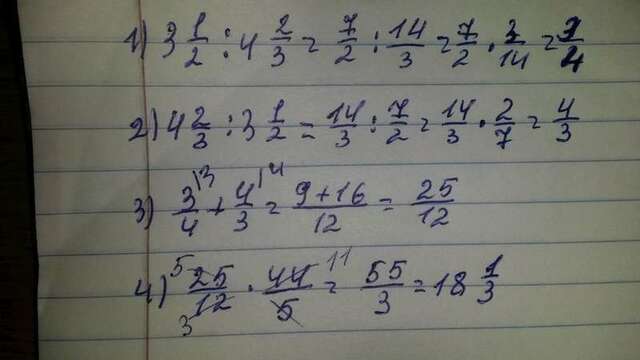 1) 3 1/2 : 4 2/3 = 7/2 : 14/3 = 7/2 · 3/14 = 3/4
2) 4 2/3 : 3 1/2 = 14/3 : 7/2 = 14/3 · 2/7 = 4/3
3) 3/4 |3 + 4/3 |4 = 9+16/12 = 25/12
4) 5 25/12 3 · 44/5 11 = 55/3 = 18 1/3